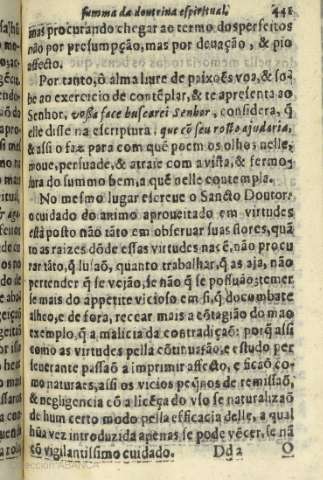 summa da doutrina espiritual. 441
mas procurando chegar ao termo dos perfeitos
não por presumpção, mas por deuação, & pio
affecto.
Por tanto, ó alma liure de paixoẽs voa, & so-
be ao exercicio de contẽplar, & te apresenta ao
Senhor, vossa face buscarei Senhor, considera, q̃
elle disse na escriptura, que cõ seu rosto ajudaria,
& assi o faz para com quẽ poem os olhos nelle,
moue, persuade, & atraie com a vista, & fermo-
sura do summo bem, a quẽ nelle contempla.
No mesmo lugar escreue o Sancto Doutor,
o cuidado do animo aproueitado em virtudes
está posto não tãto em obseruar suas flores, quã
to as raizes dõde essas virtudes nascẽ, não procu
rar tãto, q̃ luzaõ, quanto trabalhar, q̃ as aja, não
pertender q̃ se vejão, se não q̃ se possuão: temer
se mais do appetite vicioso em si, q̃ do cumbate
alheo, e de fora, recear mais a cõtagião do mao
exemplo, q̃ a malicia da contradição: porq̃ assi
como as virtudes pella cõtinuasão, e studo per
seuerante passaõ a imprimir affecto, e ficaõ co-
mo naturaes, assi os vicios peq̃nos de remissaõ,
& negligencia cõ a licẽça do vso se naturalizaõ
de hum certo modo pella efficacia delle, a qual
hũa vez introduzida apenas se pode vẽcer, se nã
cõ vigilantissimo cuidado. Dd2 O
Colección ABANCA